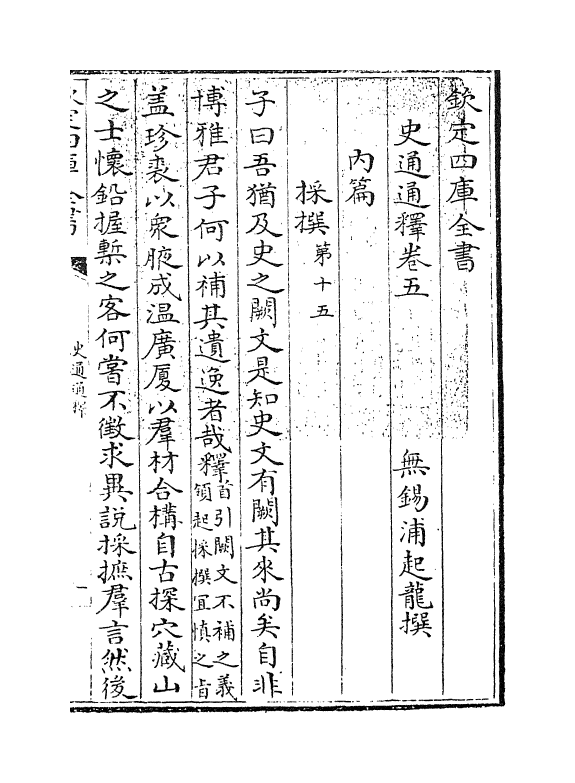 欽定四庫全書
史通通釋卷五
無錫浦起龍撰
内篇
採撰第十五
子曰吾猶及史之闕文是知史文有闕其來尚矣自非
博雅君子何以補其遺逸者哉釋首引闕文不補之義領起採撰宜慎之旨
蓋珍裘以衆腋成温廣厦以羣材合構自古探穴藏山
之士懷鉛握槧之客何嘗不徵求異説採摭羣言然後
欽定四庫全書
史通通釋
一